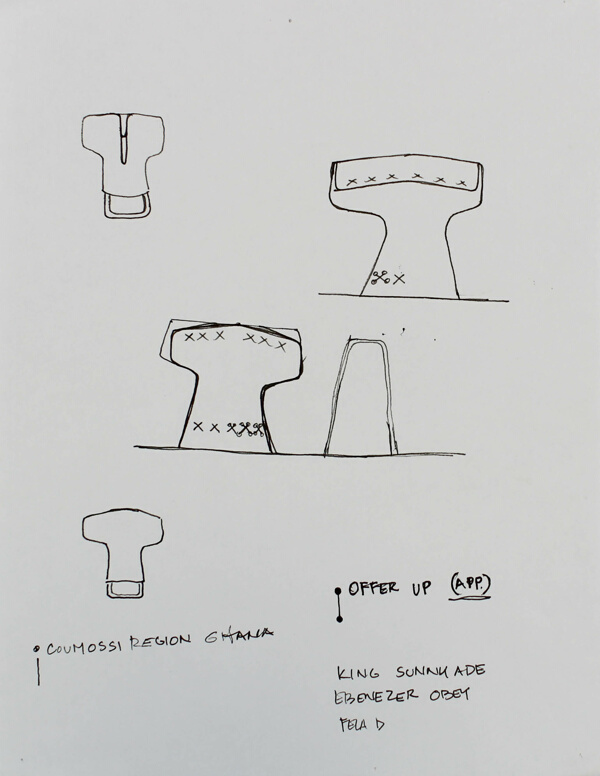 OFFER UP (APP.)
COUMOSSI REGION GHANA
KING SUNNY ADE
EBENEZER OBEY
FELA D